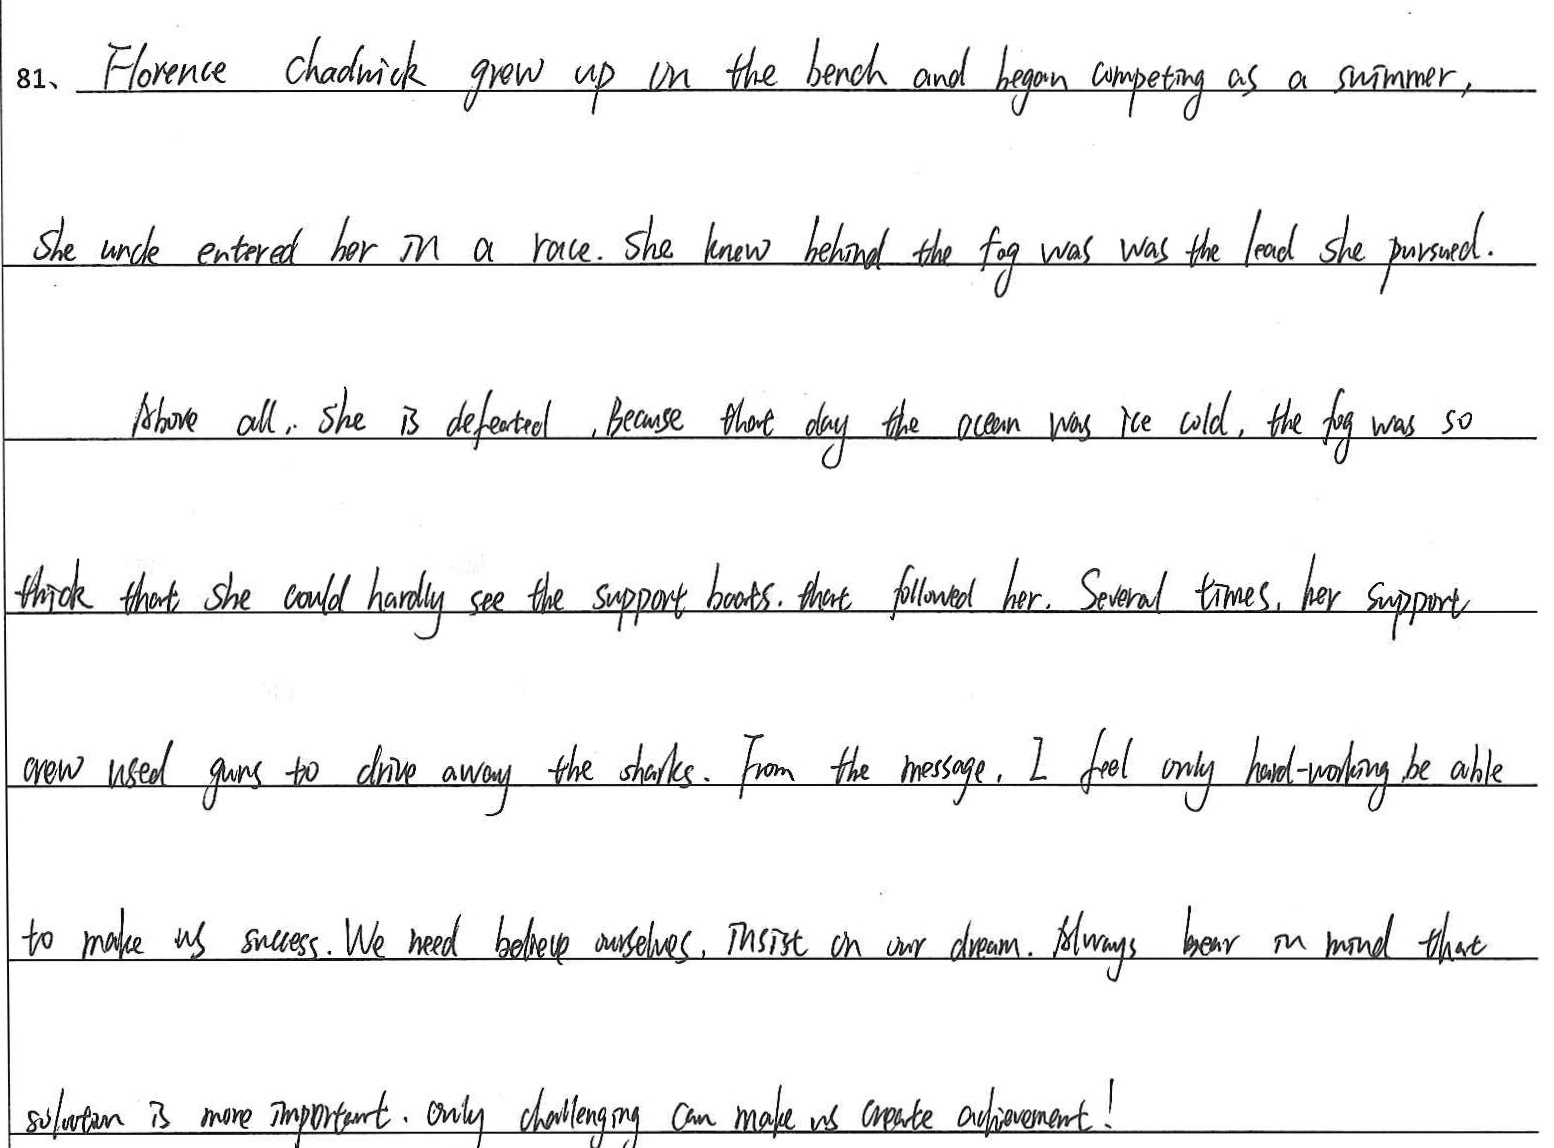 81、Florence Chadwick grew up on the bench and began competing as a swimmer,
She uncle entered her in a race. She knew behind the fog was was the lead she pursued.
Above all, She is defeated, Because that day the ocean was ice cold, the fog was so
thick that she could hardly see the support boats. that followed her. Several times, her support
crew used guns to drive away the sharks. From the message, I feel only hard-working be able
to make us success. We need believe ourselves, insist on our dream. Always bear in mind that
solution is more important. Only challenging can make us create achievement!